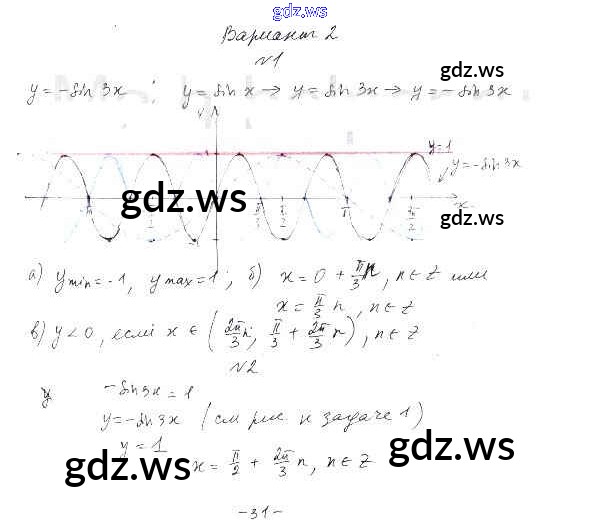 gdz.ws
Вариант 2
№1
gdz.ws
y = -sin 3x ; y = sin x → y = sin 3x → y = -sin 3x
y
y=1
y=-sin3x
x
gdz.ws
gdz.ws
а) y min = -1, y max = 1 ; б) x = 0 + π/3 n, n ∈ Z или
x = π/3 n, n ∈ Z
в) y < 0, если x ∈ (2π/3 n; π/3 + 2π/3 n), n ∈ Z
№2
y -sin3x = 1
y = -sin3x (см рис. к задаче 1)
y = 1
gdz.ws
gdz.ws
x = π/2 + 2π/3 n, n ∈ Z
-31-